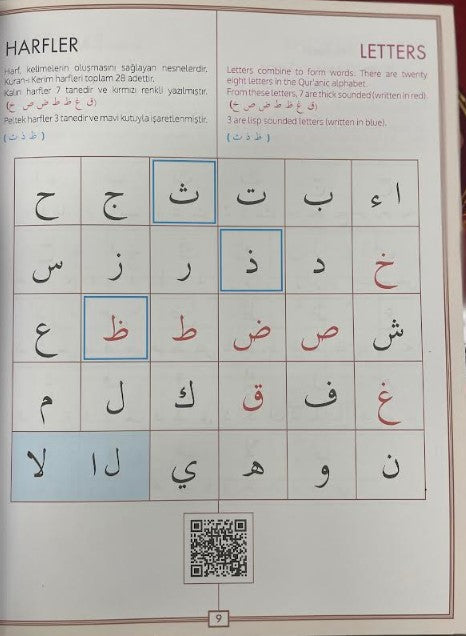 HARFLER
Harf, kelimelerin oluşmasını sağlayan nesnelerdir.
Kuran-ı Kerim harfleri toplam 28 adettir.
Kalın harfler 7 tanedir ve kırmızı renkli yazılmıştır.
(خ ص ض ط ظ غ ق)
Peltek harfler 3 tanedir ve mavi kutuyla işaretlenmiştir.
(ث ذ ظ)
LETTERS
Letters combine to form words. There are twenty
eight letters in the Qur'anic alphabet.
From these letters, 7 are thick sounded (written in red).
(خ ص ض ط ظ غ ق)
3 are lisp sounded letters (written in blue).
(ث ذ ظ)
ا ء ب ت ث ج ح
خ د ذ ر ز س
ش ص ض ط ظ ع
غ ف ق ك ل م
ن و ه ي ل ا لا
9